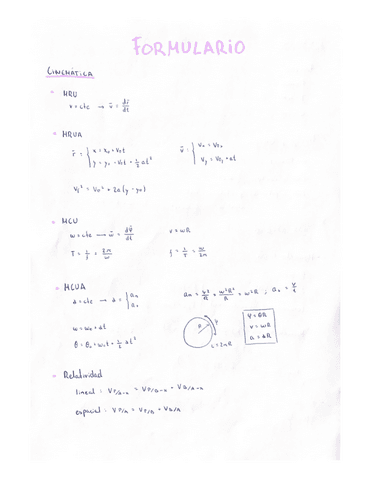 FORMULARIO
CINEMÁTICA
MRU
v = cte → v̄ = dr̄/dt
MRUA
r̄ = { x = x₀ + v₀t
y = y₀ + v₀t + 1/2 at²
v̄ = { Vₓ = V₀ₓ
Vy = V₀y + at
Vf² = V₀² + 2a(y - y₀)
MCU
w = cte → w̄ = dθ̄/dt
v = wR
T = 1/f = 2π/w
f = 1/T = w/2π
MCUA
α = cte → a = { aₙ
aₜ
aₙ = v²/R = w²R²/R = w²R ; aₜ = v/t
w = w₀ + αt
θ = θ₀ + w₀t + 1/2 αt²
L = 2πR
Y = θR
v = wR
a = αR
Relatividad
lineal :
espacial : V P/A = V P/B + V B/A